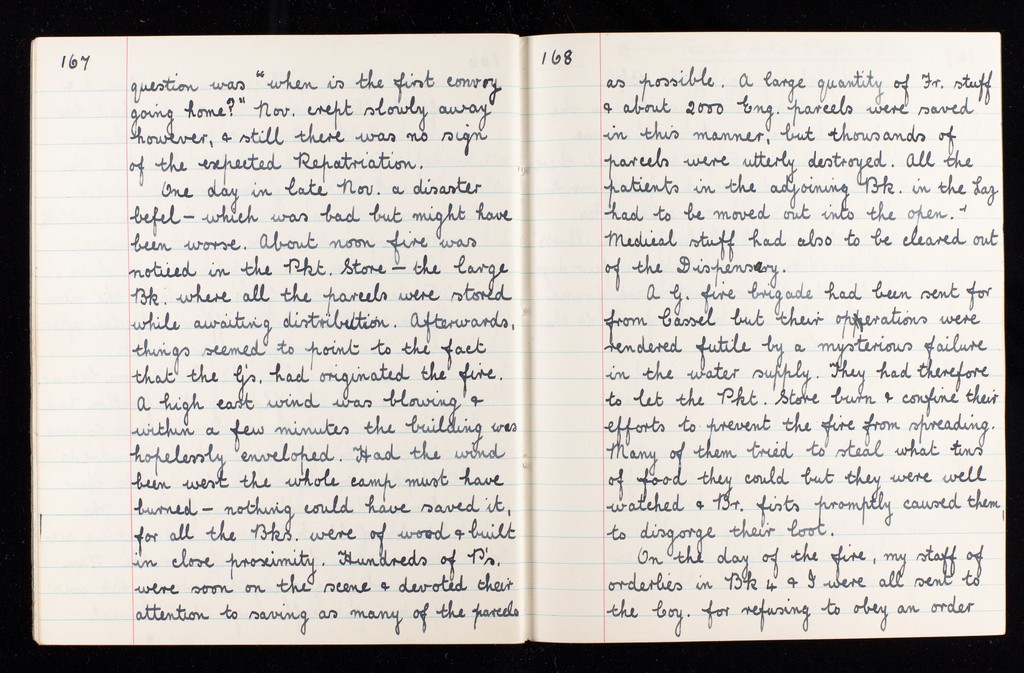 167
question was "when is the first convoy
going home?" Nov. crept slowly away
however, & still there was no sign
of the expected Repatriation.
One day in late Nov. a disaster
befel – which was bad but might have
been worse. About noon fire was
noticed in the Pkt. Store – the large
Bk. where all the parcels were stored
while awaiting distribution. Afterwards,
things seemed to point to the fact
that the G's. had originated the fire.
A high east wind was blowing &
within a few minutes the building was
hopelessly enveloped. Had the wind
been west the whole camp must have
burned – nothing could have saved it,
for all the Bks. were of wood & built
in close proximity. Hundreds of P's.
were soon on the scene & devoted their
attention to saving as many of the parcels
168
as possible. A large quantity of Fr. stuff
& about 2000 Eng. parcels were saved
in this manner, but thousands of
parcels were utterly destroyed. All the
patients in the adjoining Bk. in the Laz
had to be moved out into the open.
Medical stuff had also to be cleared out
of the Dispensary.
A G. fire brigade had been sent for
from Cassel but their operations were
rendered futile by a mysterious failure
in the water supply. They had therefore
to let the Pkt. Store burn & confine their
efforts to prevent the fire from spreading.
Many of them tried to steal what tins
of food they could but they were well
watched & Br. fists promptly caused them
to disgorge their loot.
On the day of the fire, my staff of
orderlies in Bk 4 & I were all sent to
the Coy. for refusing to obey an order